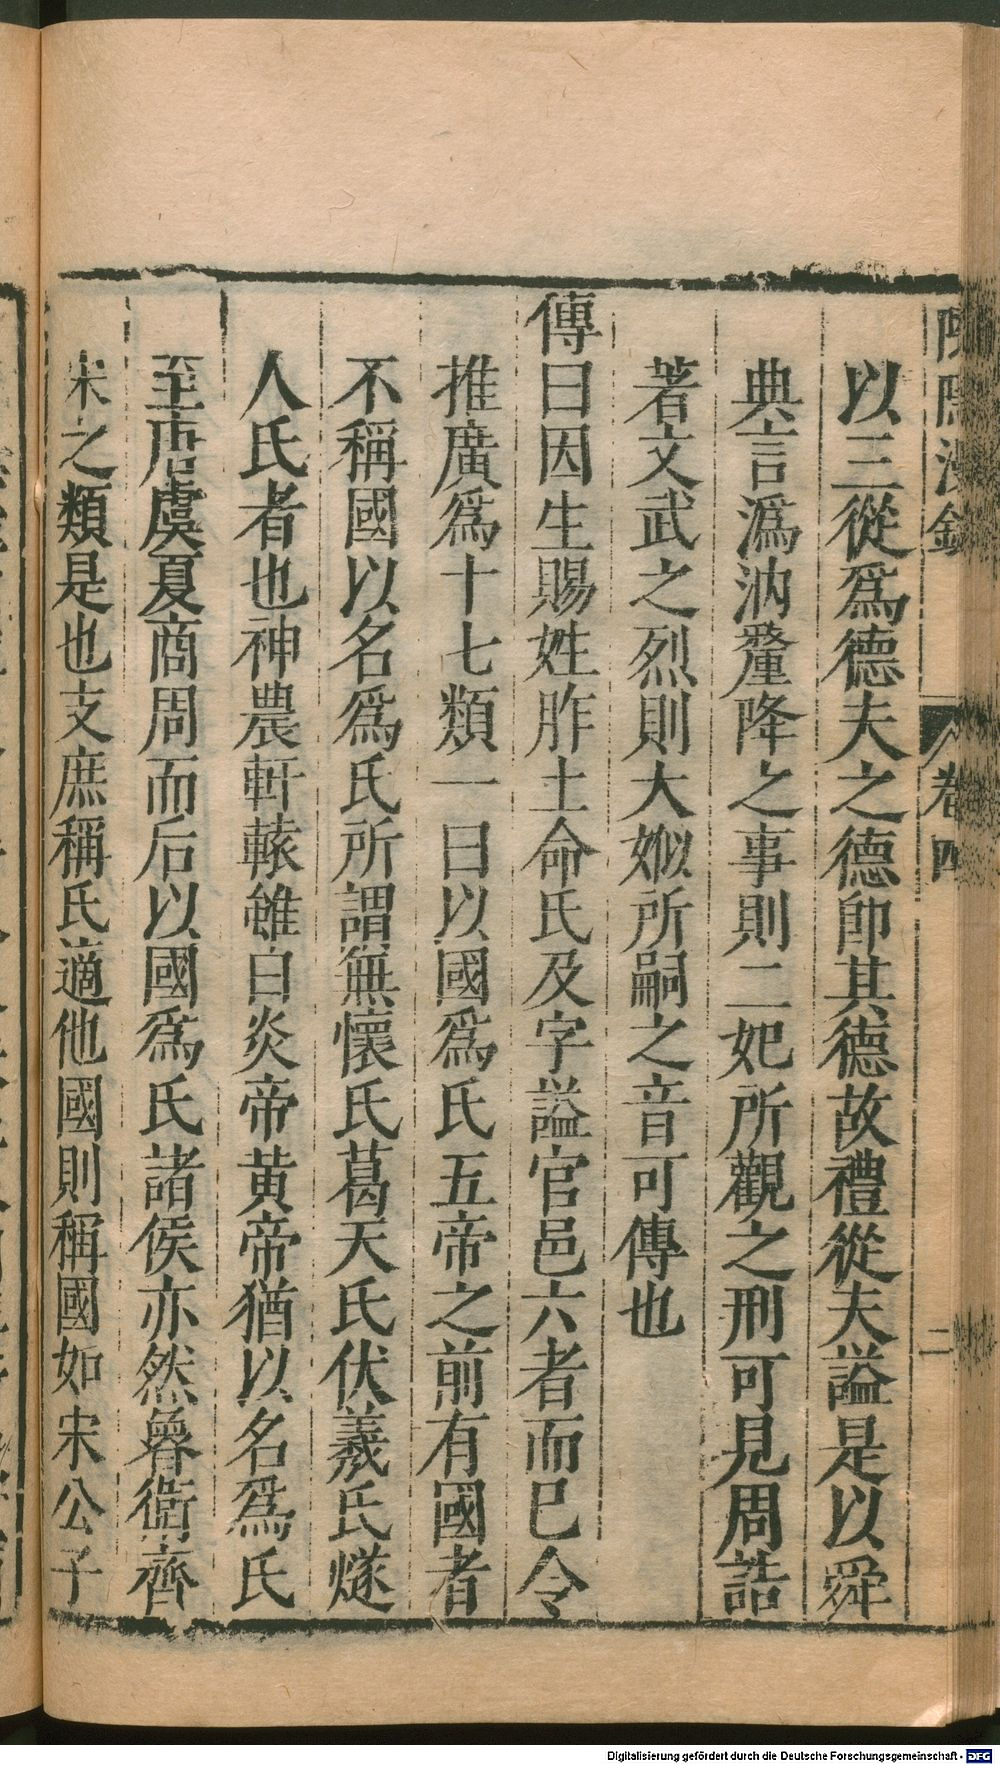 卷四
二
以三從爲德夫之德卽其德故禮從夫謚是以舜
典言潙汭釐降之事則二妃所觀之刑可見周誥
著文武之烈則大姒所嗣之音可傳也
傳曰因生賜姓胙土命氏及字謚官邑六者而已今
推廣爲十七類一曰以國爲氏五帝之前有國者
不稱國以名爲氏所謂無懷氏葛天氏伏羲氏燧
人氏者也神農軒轅雖曰炎帝黄帝猶以名爲氏
至唐虞夏商周而后以國爲氏諸侯亦然魯衛齊
宋之類是也支庶稱氏適他國則稱國如宋公子
Digitalisierung gefördert durch die Deutsche Forschungsgemeinschaft - DFG